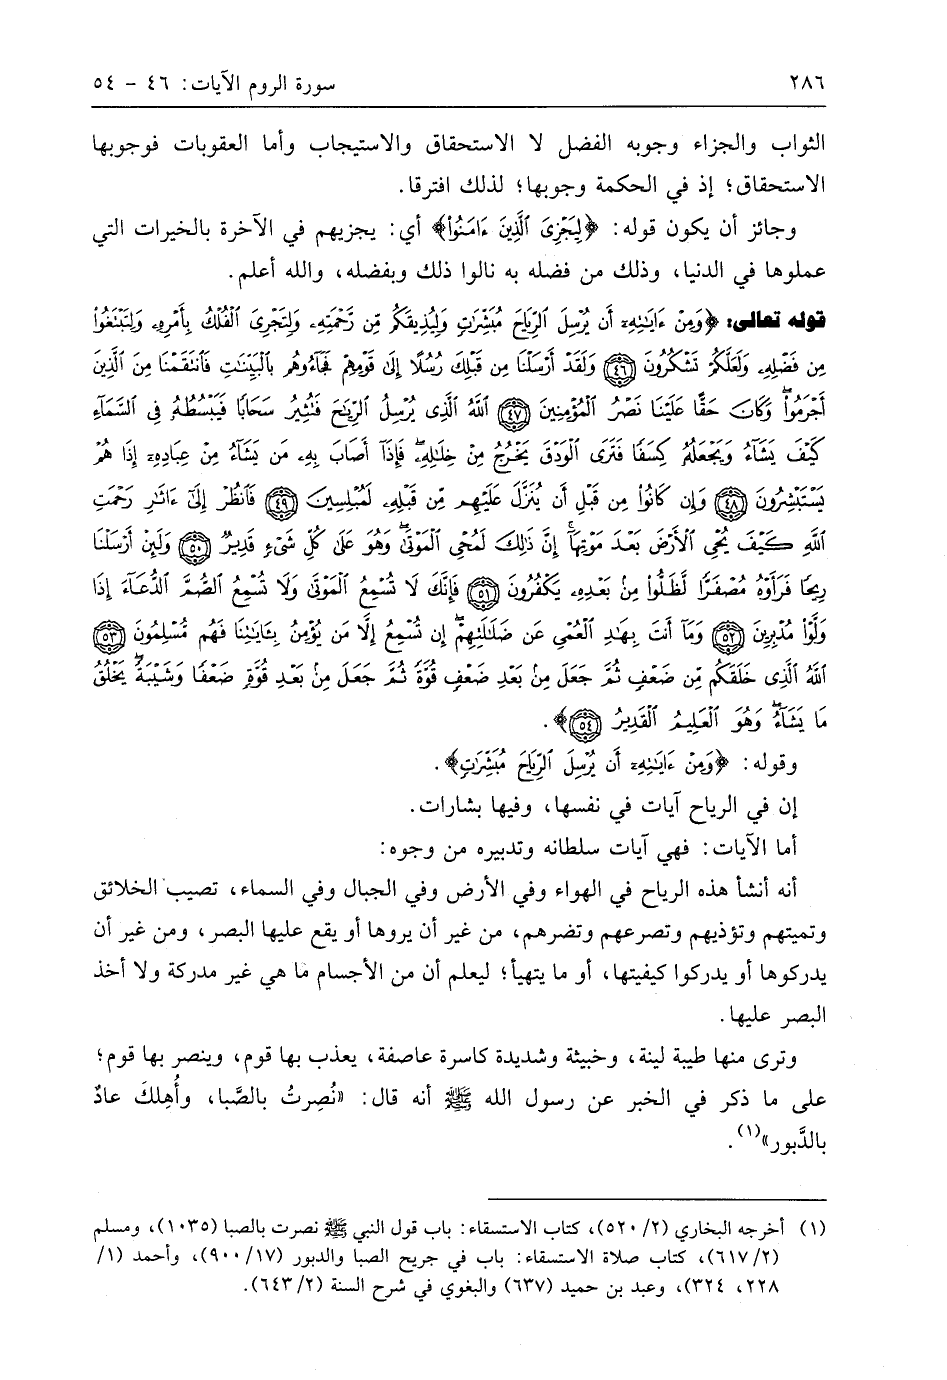 ٢٨٦
سورة الروم الآيات: ٤٦ - ٥٤
الثواب والجزاء وجوبه الفضل لا الاستحقاق والاستيجاب وأما العقوبات فوجوبها
الاستحقاق؛ إذ في الحكمة وجوبها؛ لذلك افترقا.
وجائز أن يكون قوله: ﴿لِيَجْزِىَ ٱلَّذِينَ ءَامَنُوا۟﴾ أي: يجزيهم في الآخرة بالخيرات التي
عملوها في الدنيا، وذلك من فضله به نالوا ذلك وبفضله، والله أعلم.
قوله تعالى: ﴿وَمِنْ ءَايَٰتِهِۦٓ أَن يُرْسِلَ ٱلرِّيَاحَ مُبَشِّرَٰتٍ وَلِيُذِيقَكُم مِّن رَّحْمَتِهِۦ وَلِتَجْرِىَ ٱلْفُلْكُ بِأَمْرِهِۦ وَلِتَبْتَغُوا۟
مِن فَضْلِهِۦ وَلَعَلَّكُمْ تَشْكُرُونَ ﴿٤٦﴾ وَلَقَدْ أَرْسَلْنَا مِن قَبْلِكَ رُسُلًا إِلَىٰ قَوْمِهِمْ فَجَآءُوهُم بِٱلْبَيِّنَٰتِ فَٱنتَقَمْنَا مِنَ ٱلَّذِينَ
أَجْرَمُوا۟ ۖ وَكَانَ حَقًّا عَلَيْنَا نَصْرُ ٱلْمُؤْمِنِينَ ﴿٤٧﴾ ٱللَّهُ ٱلَّذِى يُرْسِلُ ٱلرِّيَٰحَ فَتُثِيرُ سَحَابًا فَيَبْسُطُهُۥ فِى ٱلسَّمَآءِ
كَيْفَ يَشَآءُ وَيَجْعَلُهُۥ كِسَفًا فَتَرَى ٱلْوَدْقَ يَخْرُجُ مِنْ خِلَٰلِهِۦ ۖ فَإِذَآ أَصَابَ بِهِۦ مَن يَشَآءُ مِنْ عِبَادِهِۦٓ إِذَا هُمْ
يَسْتَبْشِرُونَ ﴿٤٨﴾ وَإِن كَانُوا۟ مِن قَبْلِ أَن يُنَزَّلَ عَلَيْهِم مِّن قَبْلِهِۦ لَمُبْلِسِينَ ﴿٤٩﴾ فَٱنظُرْ إِلَىٰٓ ءَاثَٰرِ رَحْمَتِ
ٱللَّهِ كَيْفَ يُحْىِ ٱلْأَرْضَ بَعْدَ مَوْتِهَآ ۚ إِنَّ ذَٰلِكَ لَمُحْىِ ٱلْمَوْتَىٰ ۖ وَهُوَ عَلَىٰ كُلِّ شَىْءٍ قَدِيرٌ ﴿٥٠﴾ وَلَئِنْ أَرْسَلْنَا
رِيحًا فَرَأَوْهُ مُصْفَرًّا لَّظَلُّوا۟ مِنۢ بَعْدِهِۦ يَكْفُرُونَ ﴿٥١﴾ فَإِنَّكَ لَا تُسْمِعُ ٱلْمَوْتَىٰ وَلَا تُسْمِعُ ٱلصُّمَّ ٱلدُّعَآءَ إِذَا
وَلَّوْا۟ مُدْبِرِينَ ﴿٥٢﴾ وَمَآ أَنتَ بِهَٰدِ ٱلْعُمْىِ عَن ضَلَٰلَتِهِمْ ۖ إِن تُسْمِعُ إِلَّا مَن يُؤْمِنُ بِـَٔايَٰتِنَا فَهُم مُّسْلِمُونَ ﴿٥٣﴾
ٱللَّهُ ٱلَّذِى خَلَقَكُم مِّن ضَعْفٍ ثُمَّ جَعَلَ مِنۢ بَعْدِ ضَعْفٍ قُوَّةً ثُمَّ جَعَلَ مِنۢ بَعْدِ قُوَّةٍ ضَعْفًا وَشَيْبَةً ۚ يَخْلُقُ
مَا يَشَآءُ ۖ وَهُوَ ٱلْعَلِيمُ ٱلْقَدِيرُ ﴿٥٤﴾﴾.
وقوله: ﴿وَمِنْ ءَايَٰتِهِۦٓ أَن يُرْسِلَ ٱلرِّيَاحَ مُبَشِّرَٰتٍ﴾.
إن في الرياح آيات في نفسها، وفيها بشارات.
أما الآيات: فهي آيات سلطانه وتدبيره من وجوه:
أنه أنشأ هذه الرياح في الهواء وفي الأرض وفي الجبال وفي السماء، تصيب الخلائق
وتميتهم وتؤذيهم وتصرعهم وتضرهم، من غير أن يروها أو يقع عليها البصر، ومن غير أن
يدركوها أو يدركوا كيفيتها، أو ما يتهيأ؛ ليعلم أن من الأجسام ما هي غير مدركة ولا أخذ
البصر عليها.
وترى منها طيبة لينة، وخبيثة وشديدة كاسرة عاصفة، يعذب بها قوم، وينصر بها قوم؛
على ما ذكر في الخبر عن رسول الله ﷺ أنه قال: «نُصِرتُ بالصَّبا، وأُهلكَ عادٌ
بالدَّبور»(١).
(١) أخرجه البخاري (٢/ ٥٢٠)، كتاب الاستسقاء: باب قول النبي ﷺ نصرت بالصبا (١٠٣٥)، ومسلم
(٢/ ٦١٧)، كتاب صلاة الاستسقاء: باب في جريح الصبا والدبور (١٧/ ٩٠٠)، وأحمد (١/
٢٢٨، ٣٢٤)، وعبد بن حميد (٦٣٧) والبغوي في شرح السنة (٢/ ٦٤٣).